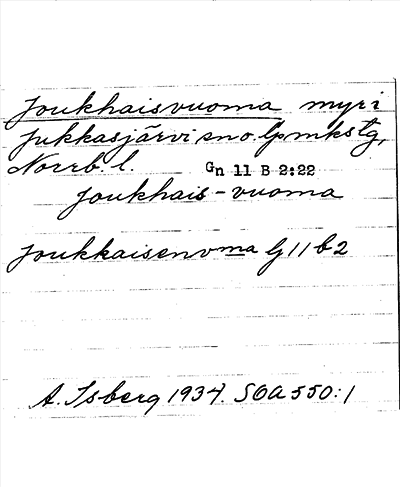 Joukhaisvuoma myr i
Jukkasjärvi sno. lpmkstg,
Norrb. l. Gn 11 B 2:22
Joukhais-vuoma
Joukkaisenvma Lj 11 b 2
A. Isberg 1934. SOA 550:1